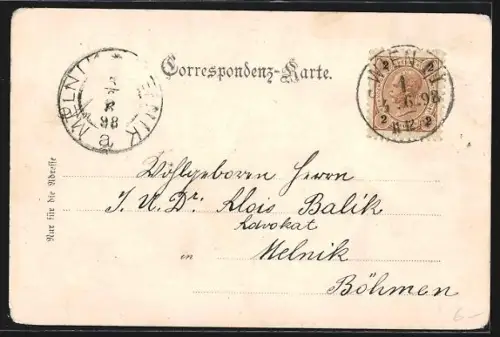 Correspondenz-Karte.
MĚLNÍK
MELNIK
98
a
WIEN
1
98
2 2
2 2
Wohlgeboren Herrn
J. U. Dr. Alois Balik
Advokat
in Melnik
Böhmen
Nur für die Adresse
6.-